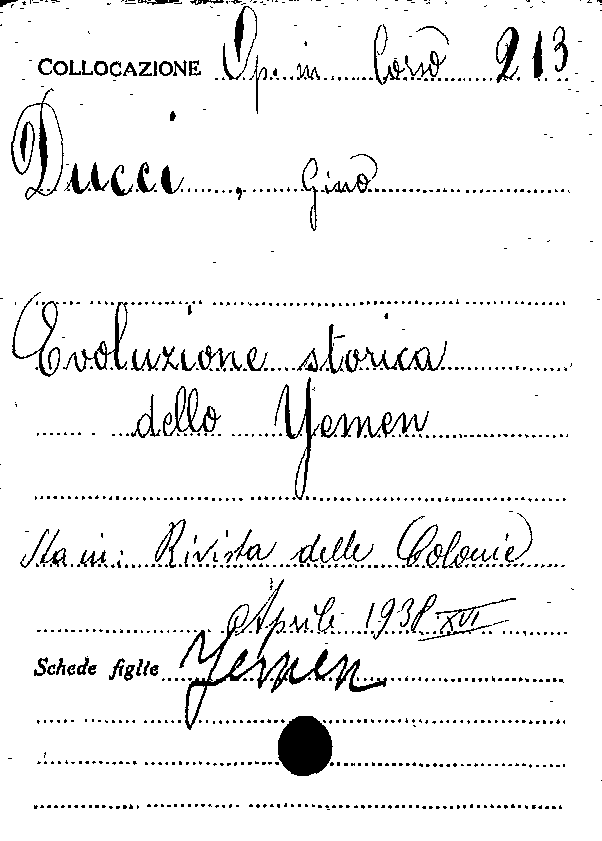 COLLOCAZIONE Op. in Corso 213
Ducci, Gino
Evoluzione storica
dello Yemen
Sta in: Rivista delle Colonie
Aprile 1938 XVI
Schede figlie Yemen